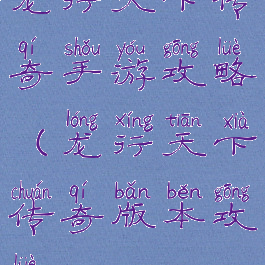 龙行天下传
qí shǒu yóu gōng lüè
奇手游攻略
lóng xíng tiān xià
（龙行天下
chuán qí bǎn běn gōng
传奇版本攻
lüè